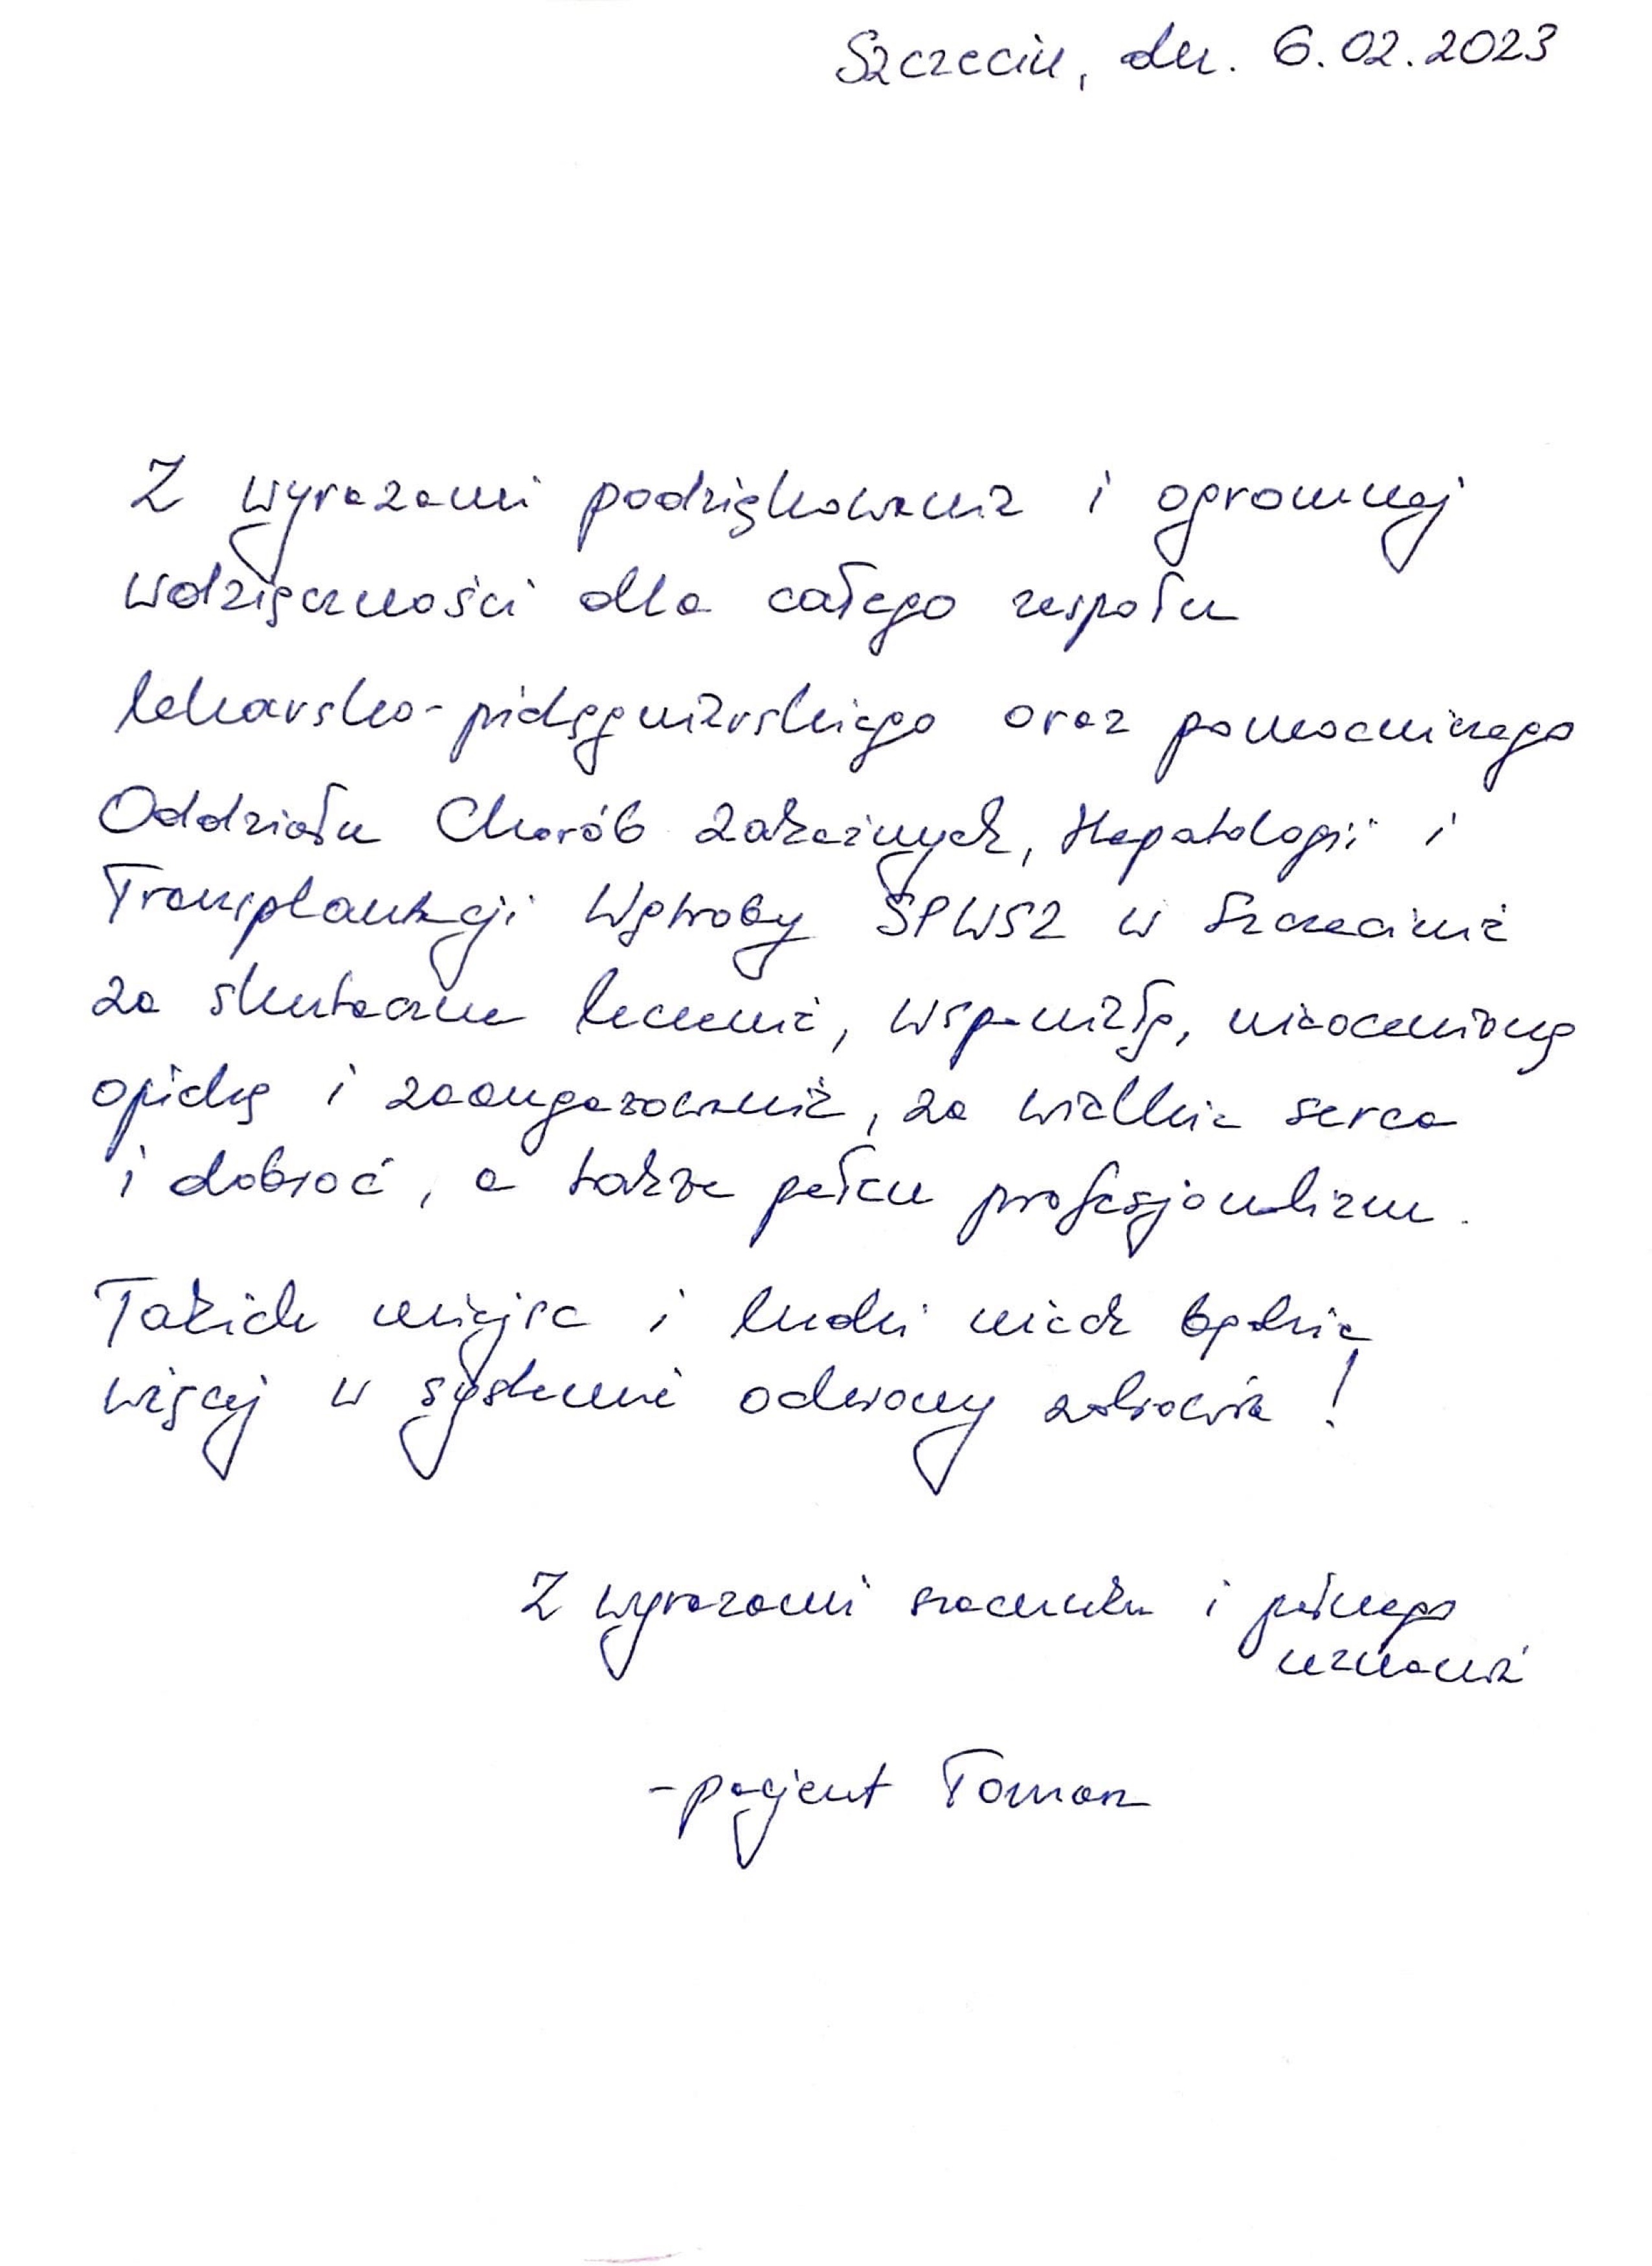 Szczecin, dn. 6.02.2023
Z wyrazami podziękowania i ogromnej
wdzięczności dla całego zespołu
lekarsko-pielęgniarskiego oraz pomocniczego
Oddziału Chorób Zakaźnych, Hepatologii i
Transplantacji Wątroby SPWSZ w Szczecinie
za skuteczne leczenie, wspaniałą, nieocenioną
opiekę i zaangażowanie, za wielkie serca
i dobroć, a także pełen profesjonalizm.
Takich miejsc i ludzi niech będzie
więcej w systemie ochrony zdrowia!
Z wyrazami szacunku i pełnego
uznania
- pacjent Tomasz